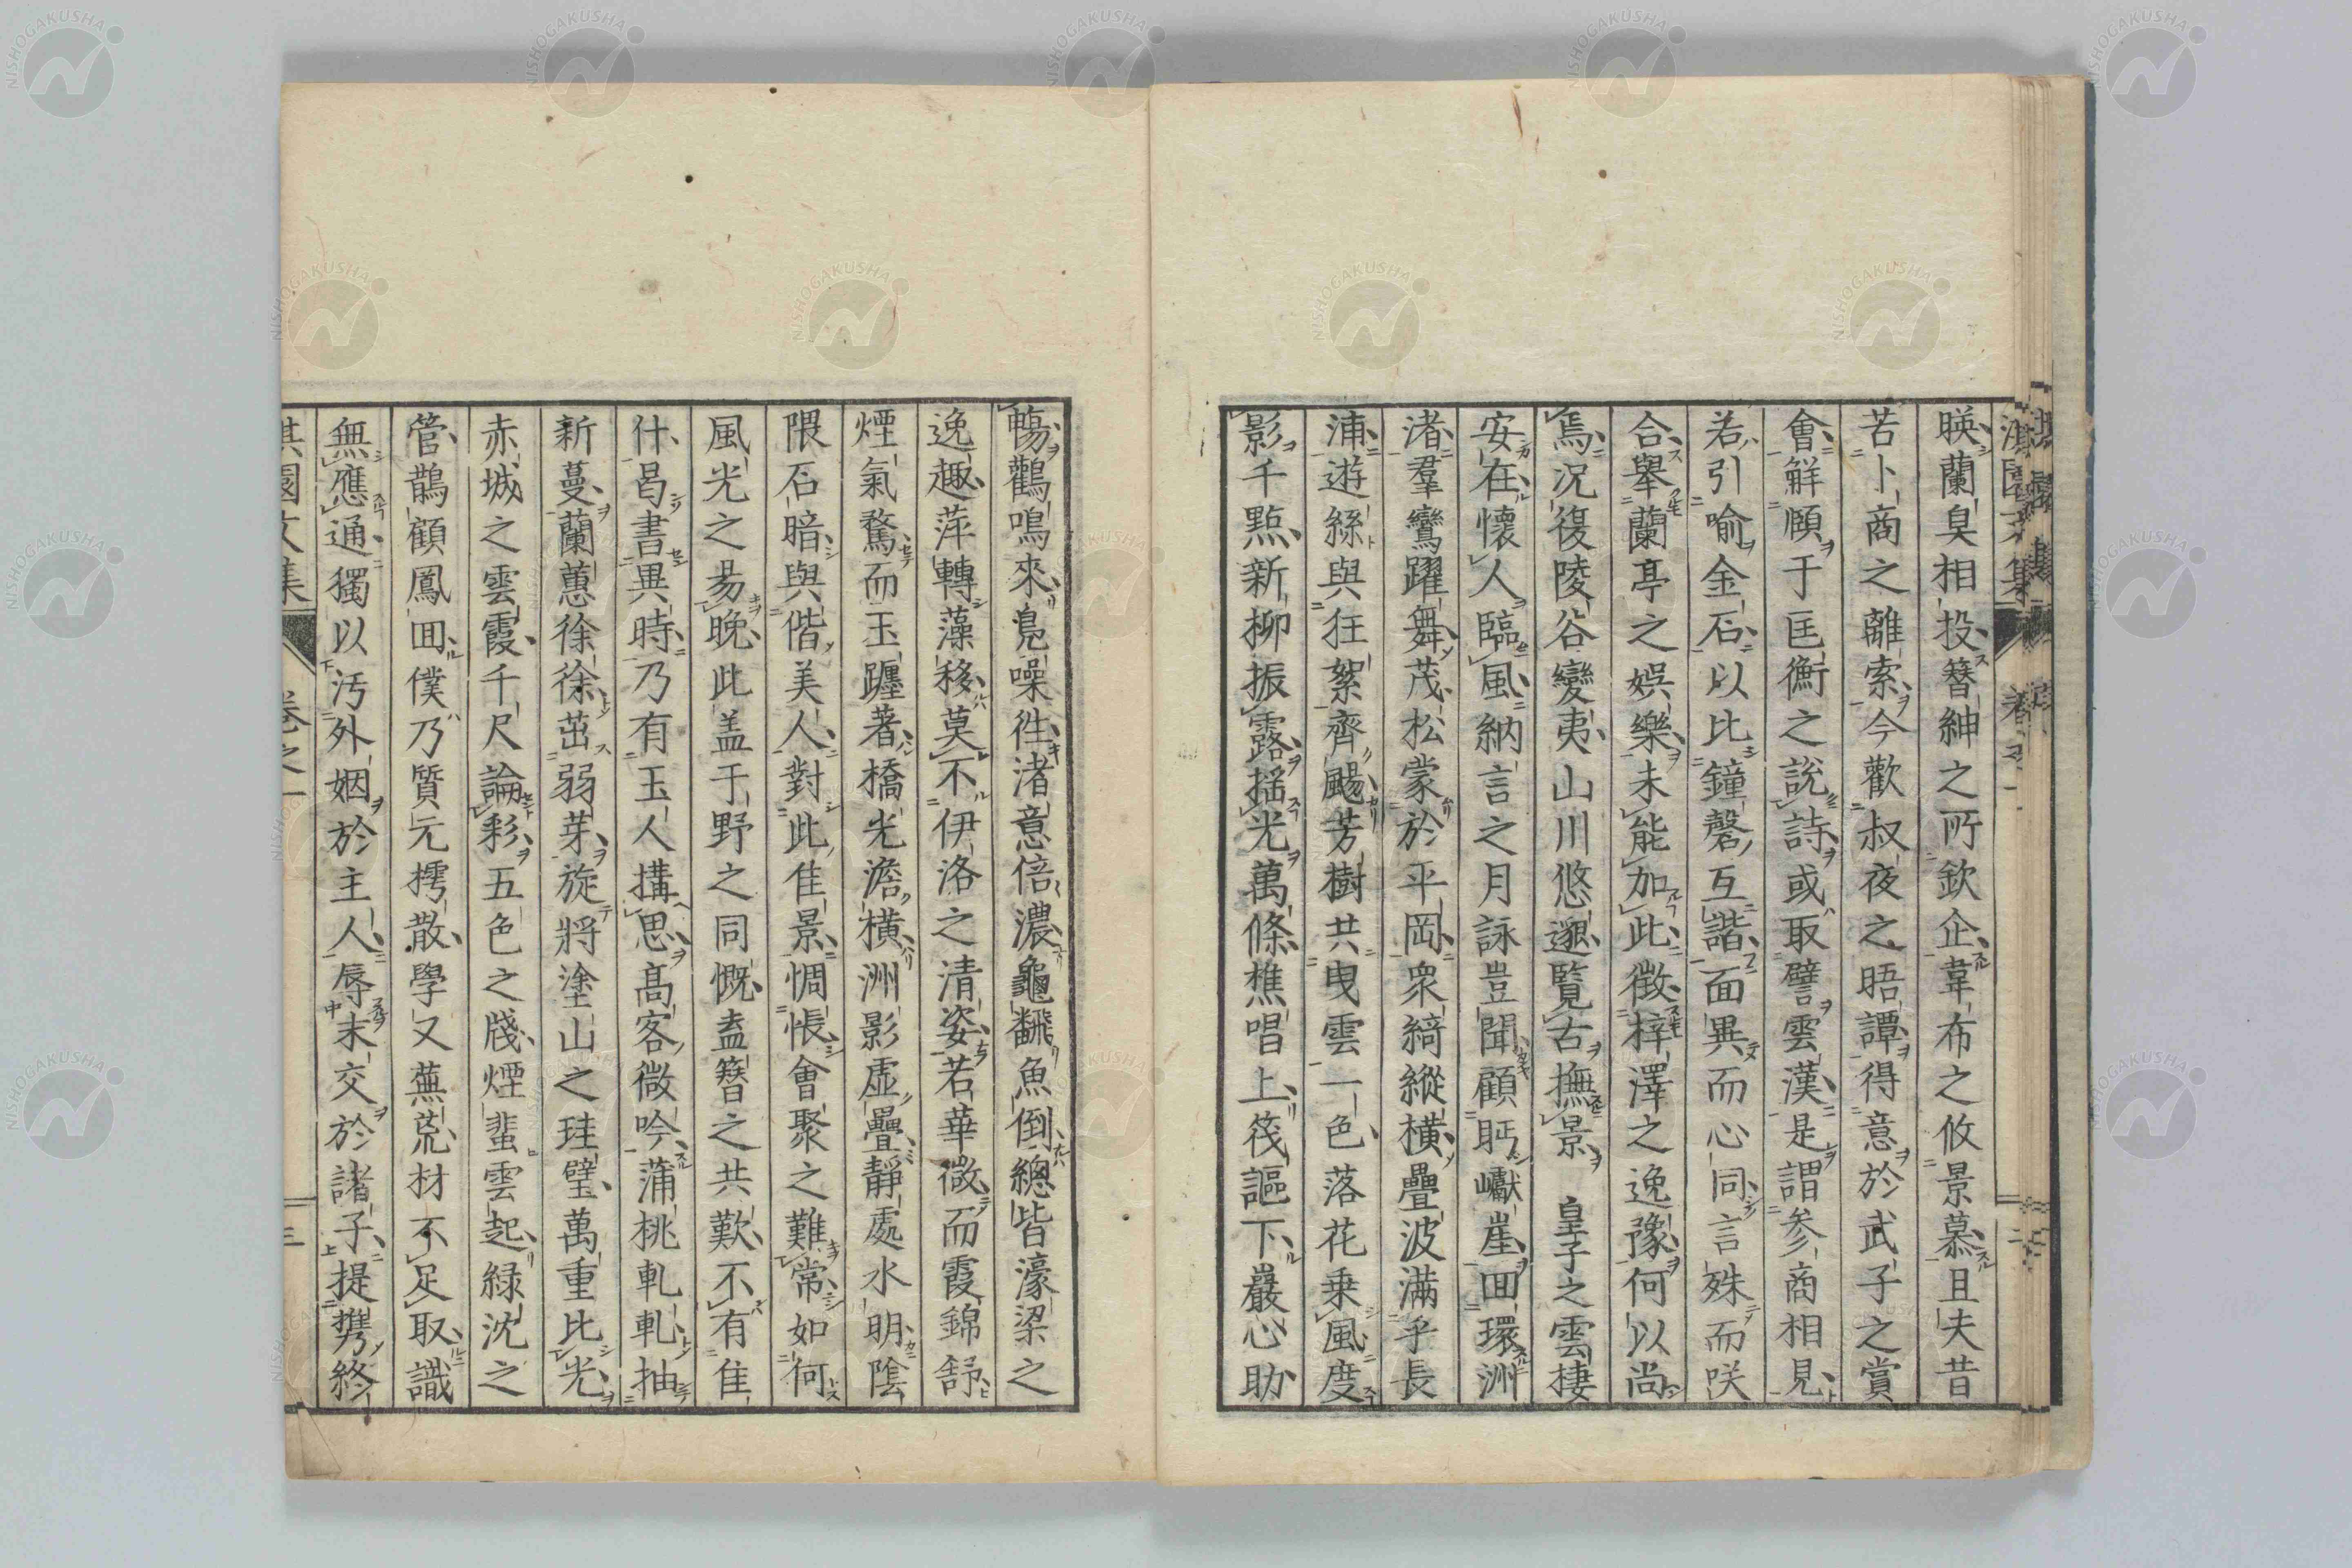 暎蘭臭相投簪紳之所欽企韋布之攸景慕且夫昔
苦卜商之離索今歡叔夜之晤譚得意於武子之賞
會鮮頤于匡衡之說詩或取譬雲漢是謂參商相見
若引喻金石以比鐘磬互諧面異而心同言殊而咲
合舉蘭亭之娛樂未能加此徵梓澤之逸豫何以尚
焉況復陵谷變夷山川悠邈覽古撫景皇子之雲棲
安在懷人臨風納言之月詠豈聞顧眄巘崖囬環洲
渚羣鸞躍舞茂松蒙於平岡衆綺縱橫疊波滿乎長
浦遊絲與狂絮齊颺芳樹共曳雲一色落花乗風度
影千㸃新柳振露搖光萬條樵唱上筏謳下巖心助
暢鸛鳴來鳧噪徃渚意倍濃龜翻魚倒總皆濠梁之
逸趣萍轉藻移莫不伊洛之清姿若華微而霞錦舒
煙氣騖而玉躔著橋光澹橫洲影虛疊靜處水明陰
隈石暗與偕美人對此佳景惆悵會聚之難常如何
風光之易晚此盖于野之同慨盍簪之共歎不有佳
什曷書異時乃有玉人搆思高客微吟蒲桃軋軋抽
新蔓蘭蕙徐徐茁弱芽旋將塗山之珪璧萬重比光
赤城之雲霞千尺論彩五色之牋煙蜚雲起緑沈之
管鵲顧鳳囬僕乃質元樗散學又蕪荒材不足取識
無應通獨以汚外姻於主人辱末交於諸子提携終
淇園文集
卷之一
三
NISHOGAKUSHA